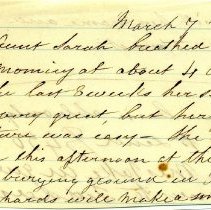 March 7
Aunt Sarah breathed
morning at about 4 o
last 3 weeks her s
very great, but her
was easy - the
this afternoon at the
burying ground in
will make a